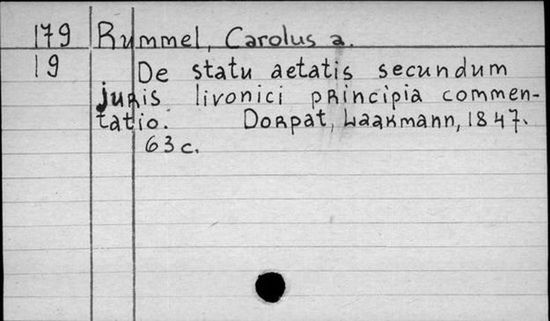 179 Rummel, Carolus a.
19 De statu aetatis secundum
juris livonici principia commen-
tatio. Dorpat, Laakmann, 1847.
63 c.